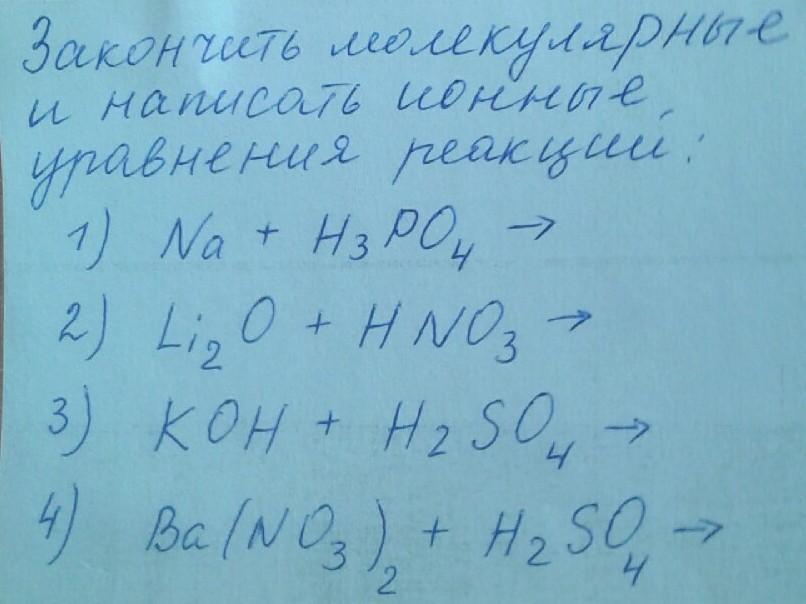 Закончить молекулярные
и написать ионные
уравнения реакций:
1) Na + H₃PO₄ →
2) Li₂O + HNO₃ →
3) KOH + H₂SO₄ →
4) Ba(NO₃)₂ + H₂SO₄ →